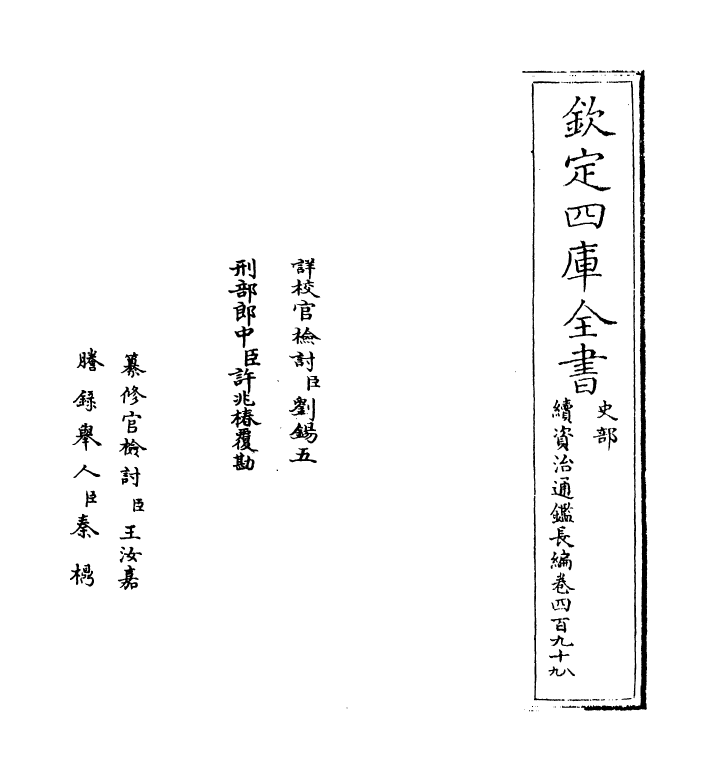 欽定四庫全書
史部
續資治通鑑長編卷四百九十八九
詳校官檢討臣劉錫五
刑部郎中臣許兆椿覆勘
纂修官檢討臣王汝嘉
謄錄舉人臣秦